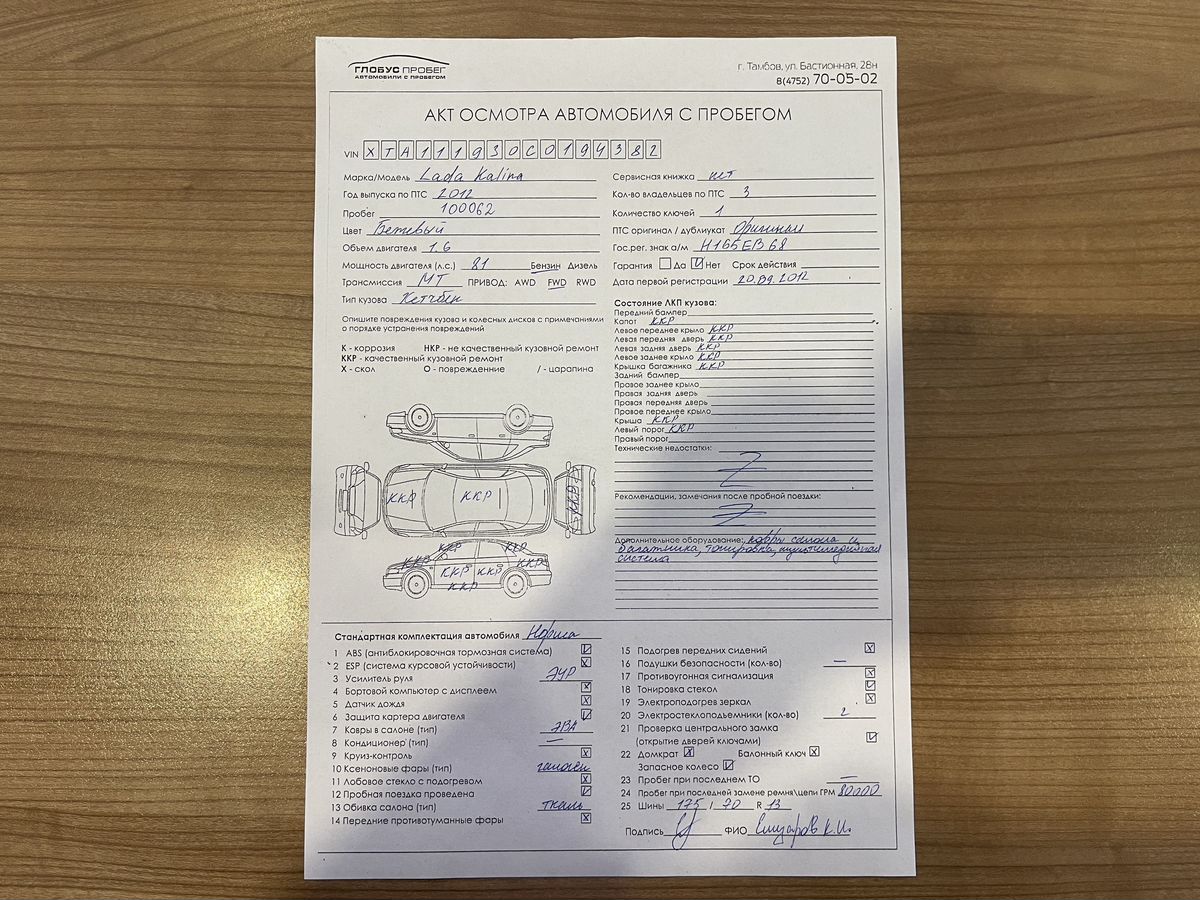 ГЛОБУС ПРОБЕГ
АВТОМОБИЛИ С ПРОБЕГОМ
г. Тамбов, ул. Бастионная, 28н
8(4752) 70-05-02
АКТ ОСМОТРА АВТОМОБИЛЯ С ПРОБЕГОМ
VIN XTA111930C0194382
Марка/Модель Lada Kalina
Год выпуска по ПТС 2012
Пробег 100062
Цвет Бежевый
Объем двигателя 1.6
Мощность двигателя (л.с.) 81 Бензин Дизель
Трансмиссия МТ ПРИВОД: AWD FWD RWD
Тип кузова Хетчбек
Сервисная книжка нет
Кол-во владельцев по ПТС 3
Количество ключей 1
ПТС оригинал / дубликат Оригинал
Гос.рег. знак а/м Н165ЕВ68
Гарантия Да Нет Срок действия
Дата первой регистрации 20.09.2012
Опишите повреждения кузова и колесных дисков с примечаниями
о порядке устранения повреждений
К - коррозия НКР - не качественный кузовной ремонт
ККР - качественный кузовной ремонт
Х - скол О - повреждение / - царапина
ККР ККР ККР
ККР ККР
ККР ККР ККР ККР
ККР
Состояние ЛКП кузова:
Передний бампер
Капот ККР
Левое переднее крыло ККР
Левая передняя дверь ККР
Левая задняя дверь ККР
Левое заднее крыло ККР
Крышка багажника ККР
Задний бампер
Правое заднее крыло
Правая задняя дверь
Правая передняя дверь
Правое переднее крыло
Крыша ККР
Левый порог ККР
Правый порог
Технические недостатки:
Рекомендации, замечания после пробной поездки:
Дополнительное оборудование: ковры салона и
багажника, тонировка, мультимедийная
система
Стандартная комплектация автомобиля Норма
1 ABS (антиблокировочная тормозная система) V
2 ESP (система курсовой устойчивости) X
3 Усилитель руля ЭУР
4 Бортовой компьютер с дисплеем X
5 Датчик дождя X
6 Защита картера двигателя V
7 Ковры в салоне (тип) ЭВА
8 Кондиционер (тип) —
9 Круиз-контроль X
10 Ксеноновые фары (тип) галоген
11 Лобовое стекло с подогревом X
12 Пробная поездка проведена V
13 Обивка салона (тип) ткань
14 Передние противотуманные фары X
15 Подогрев передних сидений X
16 Подушки безопасности (кол-во) —
17 Противоугонная сигнализация X
18 Тонировка стекол V
19 Электроподогрев зеркал X
20 Электростеклоподъемники (кол-во) 2
21 Проверка центрального замка
(открытие дверей ключами) V
22 Домкрат X Балонный ключ X
Запасное колесо V
23 Пробег при последнем ТО —
24 Пробег при последней замене ремня\цепи ГРМ 80000
25 Шины 175 / 70 R 13
Подпись ФИО К.И.